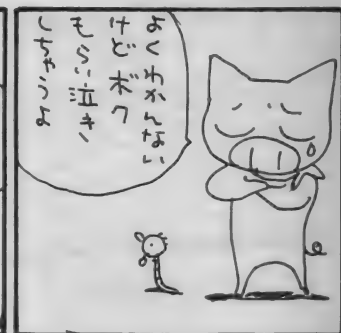 よくわかんない
けどボク
もらい泣き
しちゃうよ